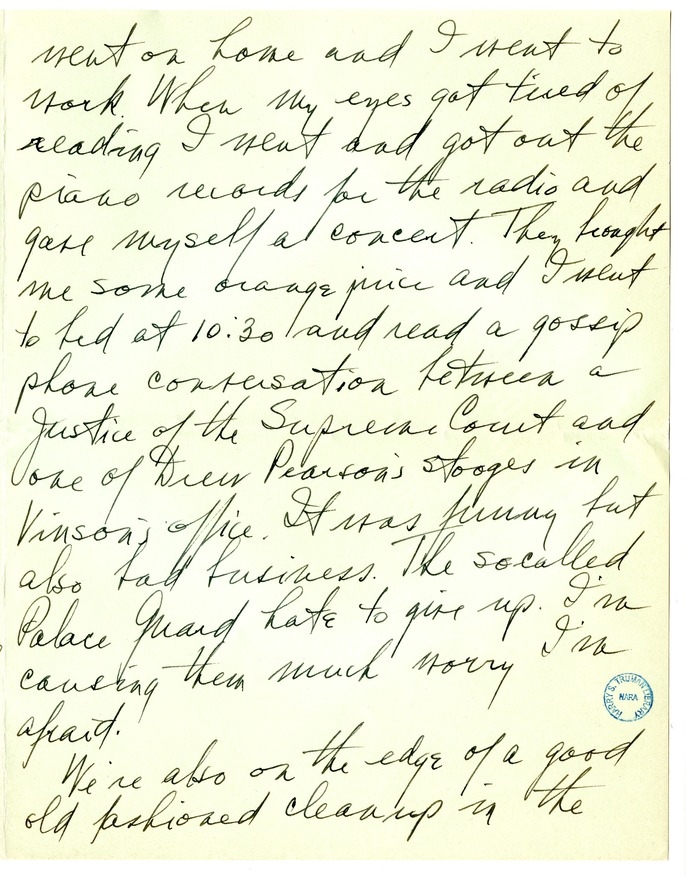 went on home and I went to
work. When my eyes got tired of
reading I went and got out the
piano records for the radio and
gave myself a concert. They brought
me some orange juice and I went
to bed at 10:30 and read a gossip
phone conversation between a
Justice of the Supreme Court and
one of Drew Pearson's stooges in
Vinson's office. It was funny but
also bad business. The socalled
Palace Guard hate to give up. I'm
causing them much worry I'm
afraid.
We're also on the edge of a good
old fashioned cleanup in the
HARRY S. TRUMAN LIBRARY
NARA